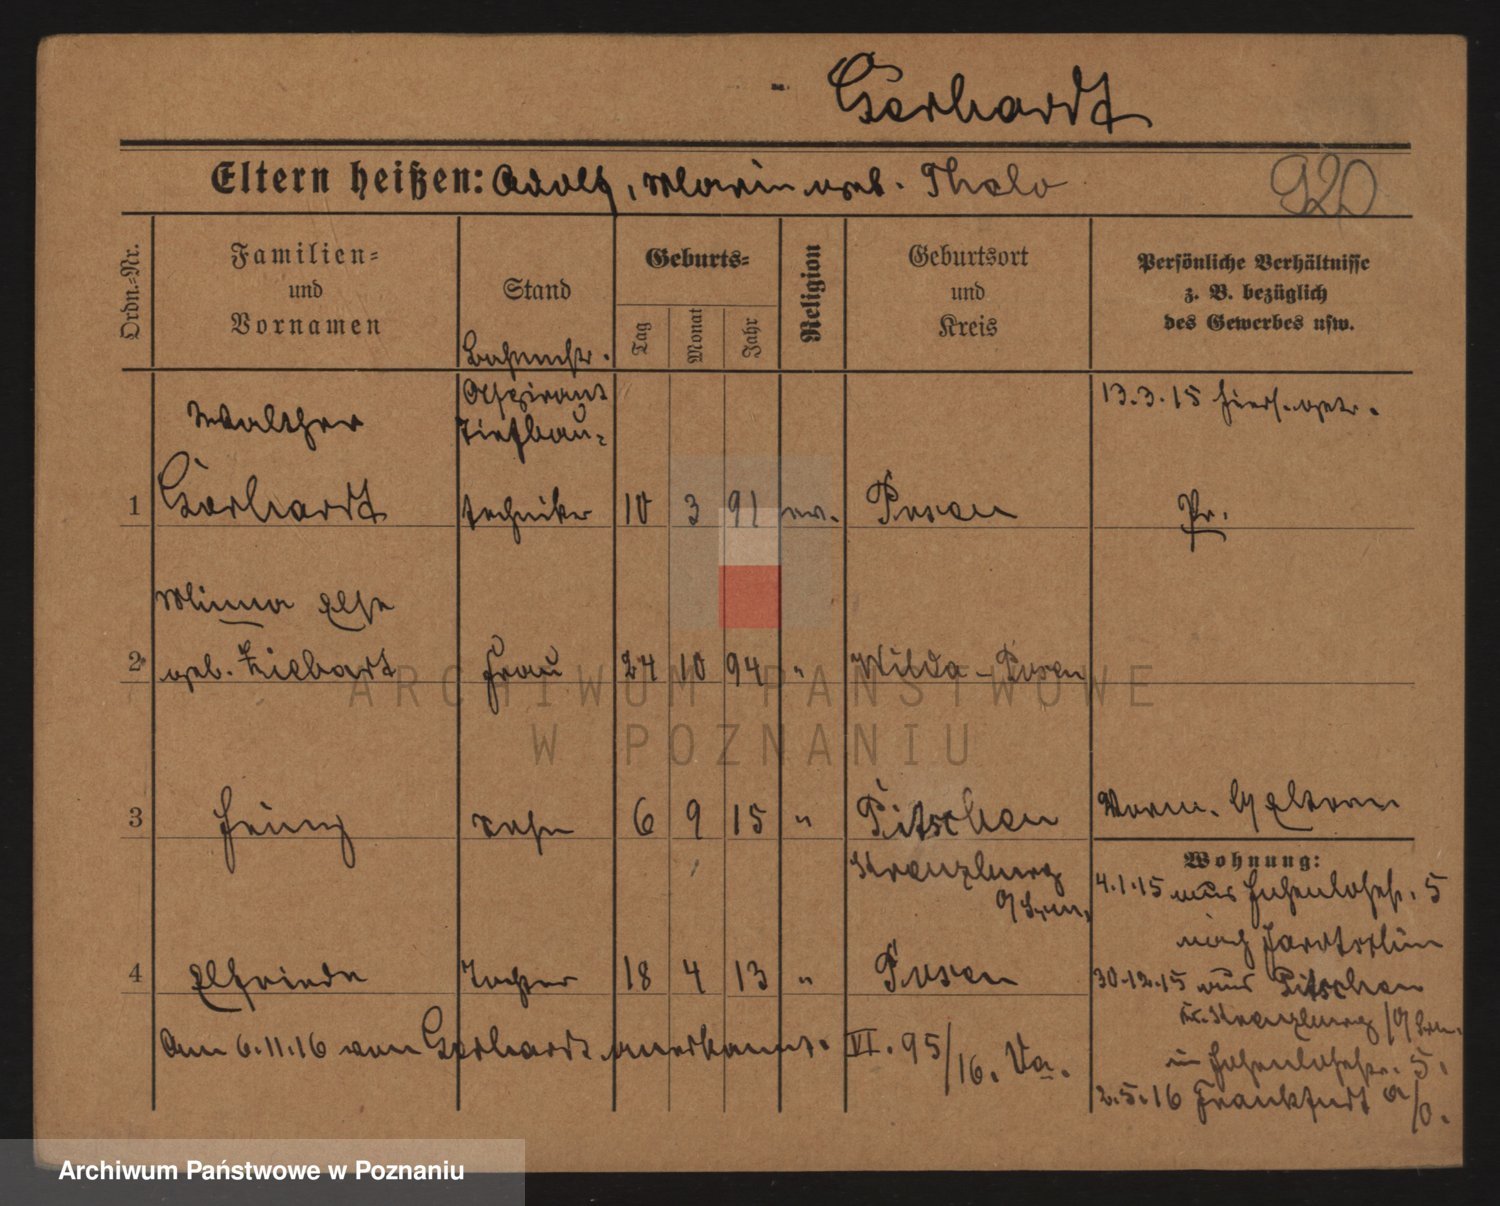 Gerhardt
Eltern heißen: Adolf, Marie geb. Thelo
920
Ordn.=Nr.
Familien=
und
Vornamen
Stand
Geburts=
Tag
Monat
Jahr
Religion
Geburtsort
und
Kreis
Persönliche Verhältnisse
z. B. bezüglich
des Gewerbes usw.
Bahnmstr.
Aspirant
Walther
Tiefbau-
13.3.15 hiers. getr.
1 Gerhardt techniker 10 3 91 ev. Posen Pr.
Minna Else
2 geb. Ziebart Frau 24 10 94 " Wilda-Posen
3 Heinz Sohn 6 9 15 " Pitschen
Vorm. Eltern
Kreuzburg
Wohnung:
4.1.15 aus Hohenlohestr. 5
nach
4 Elfriede Tochter 18 4 13 " Posen
30.12.15 aus Pitschen
Kr. Kreuzburg
Am 6.11.16 von Gerhardt anerkannt. VI. 95/16. Va.
in Hohenlohestr. 5.
2.5.16 Frankfurt a/O.
ARCHIWUM PAŃSTWOWE
W POZNANIU
Archiwum Państwowe w Poznaniu